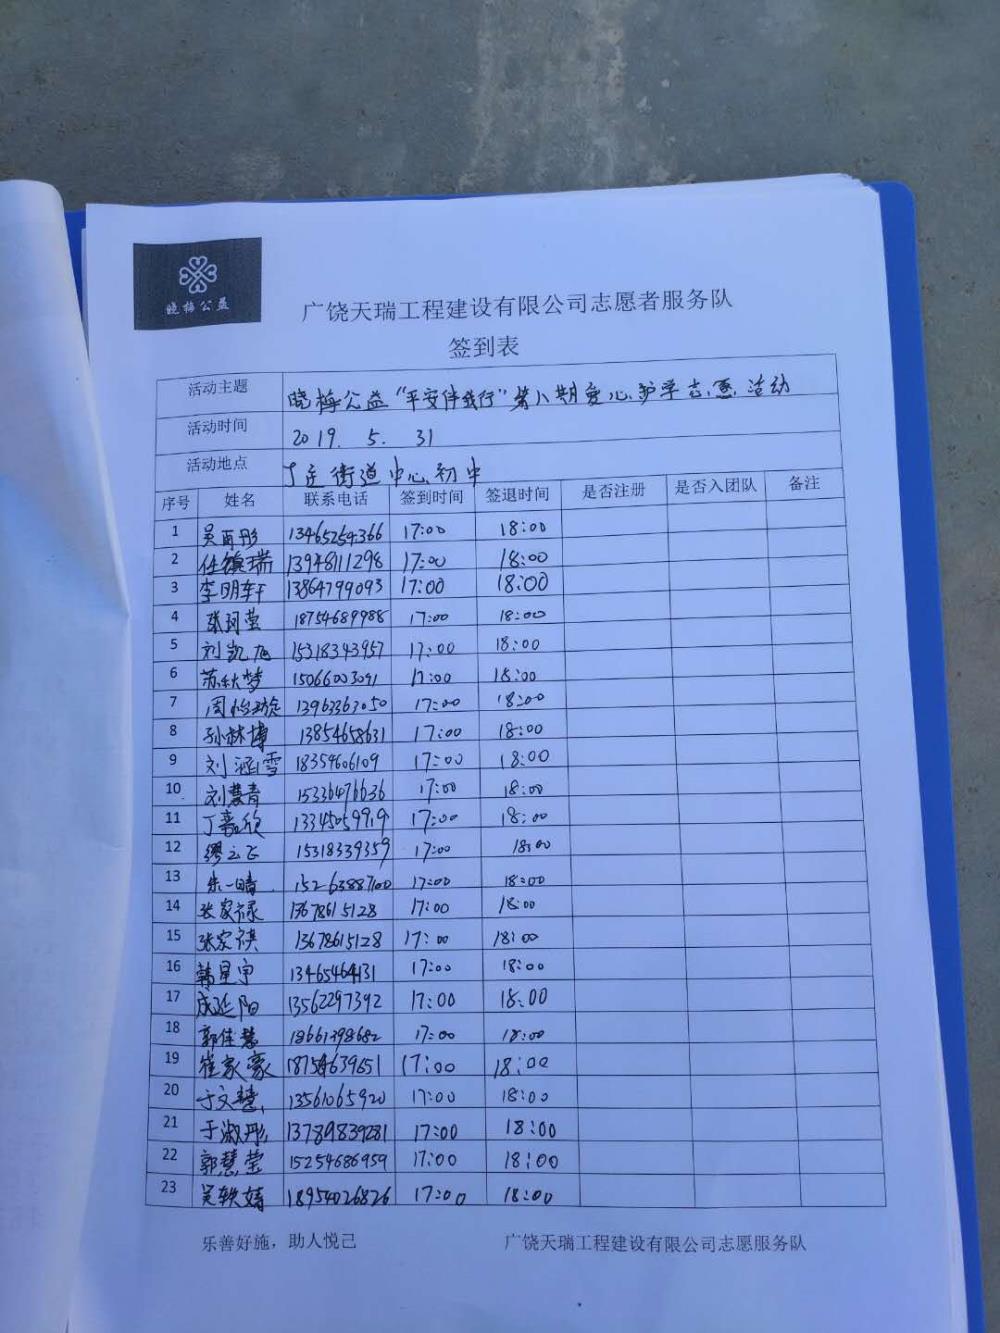 晓梅公益
广饶天瑞工程建设有限公司志愿者服务队
签到表
活动主题 晓梅公益“平安伴我行”第八期爱心护学志愿活动
活动时间 2019. 5. 31
活动地点 丁庄街道中心初中
序号 姓名 联系电话 签到时间 签退时间 是否注册 是否入团队 备注
1 吴雨彤 13465254366 17:00 18:00
2 任镇瑞 13948111298 17:00 18:00
3 李明轩 13864799093 17:00 18:00
4 张珂莹 18754689988 17:00 18:00
5 刘凯旭 15318343957 17:00 18:00
6 苏秋梦 15066003091 17:00 18:00
7 周怡璇 13963363050 17:00 18:00
8 孙林博 13854658631 17:00 18:00
9 刘涵雪 18354606109 17:00 18:00
10 刘慧青 15336476636 17:00 18:00
11 丁豪欣 13345059919 17:00 18:00
12 缪云飞 15318339359 17:00 18:00
13 朱一晴 15263887100 17:00 18:00
14 张家禄 13678615128 17:00 18:00
15 张家祺 13678615128 17:00 18:00
16 韩星宇 13465464131 17:00 18:00
17 成延阳 13562297392 17:00 18:00
18 郭佳慧 18661398682 17:00 18:00
19 崔家豪 18754639651 17:00 18:00
20 于文慧 13561065920 17:00 18:00
21 于淑彤 13789839281 17:00 18:00
22 郭慧莹 15254686959 17:00 18:00
23 吴轶婧 18954026826 17:00 18:00
乐善好施，助人悦己 广饶天瑞工程建设有限公司志愿服务队